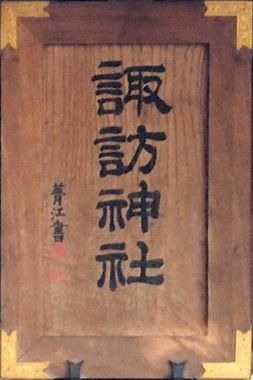 諏訪神社
菁江書